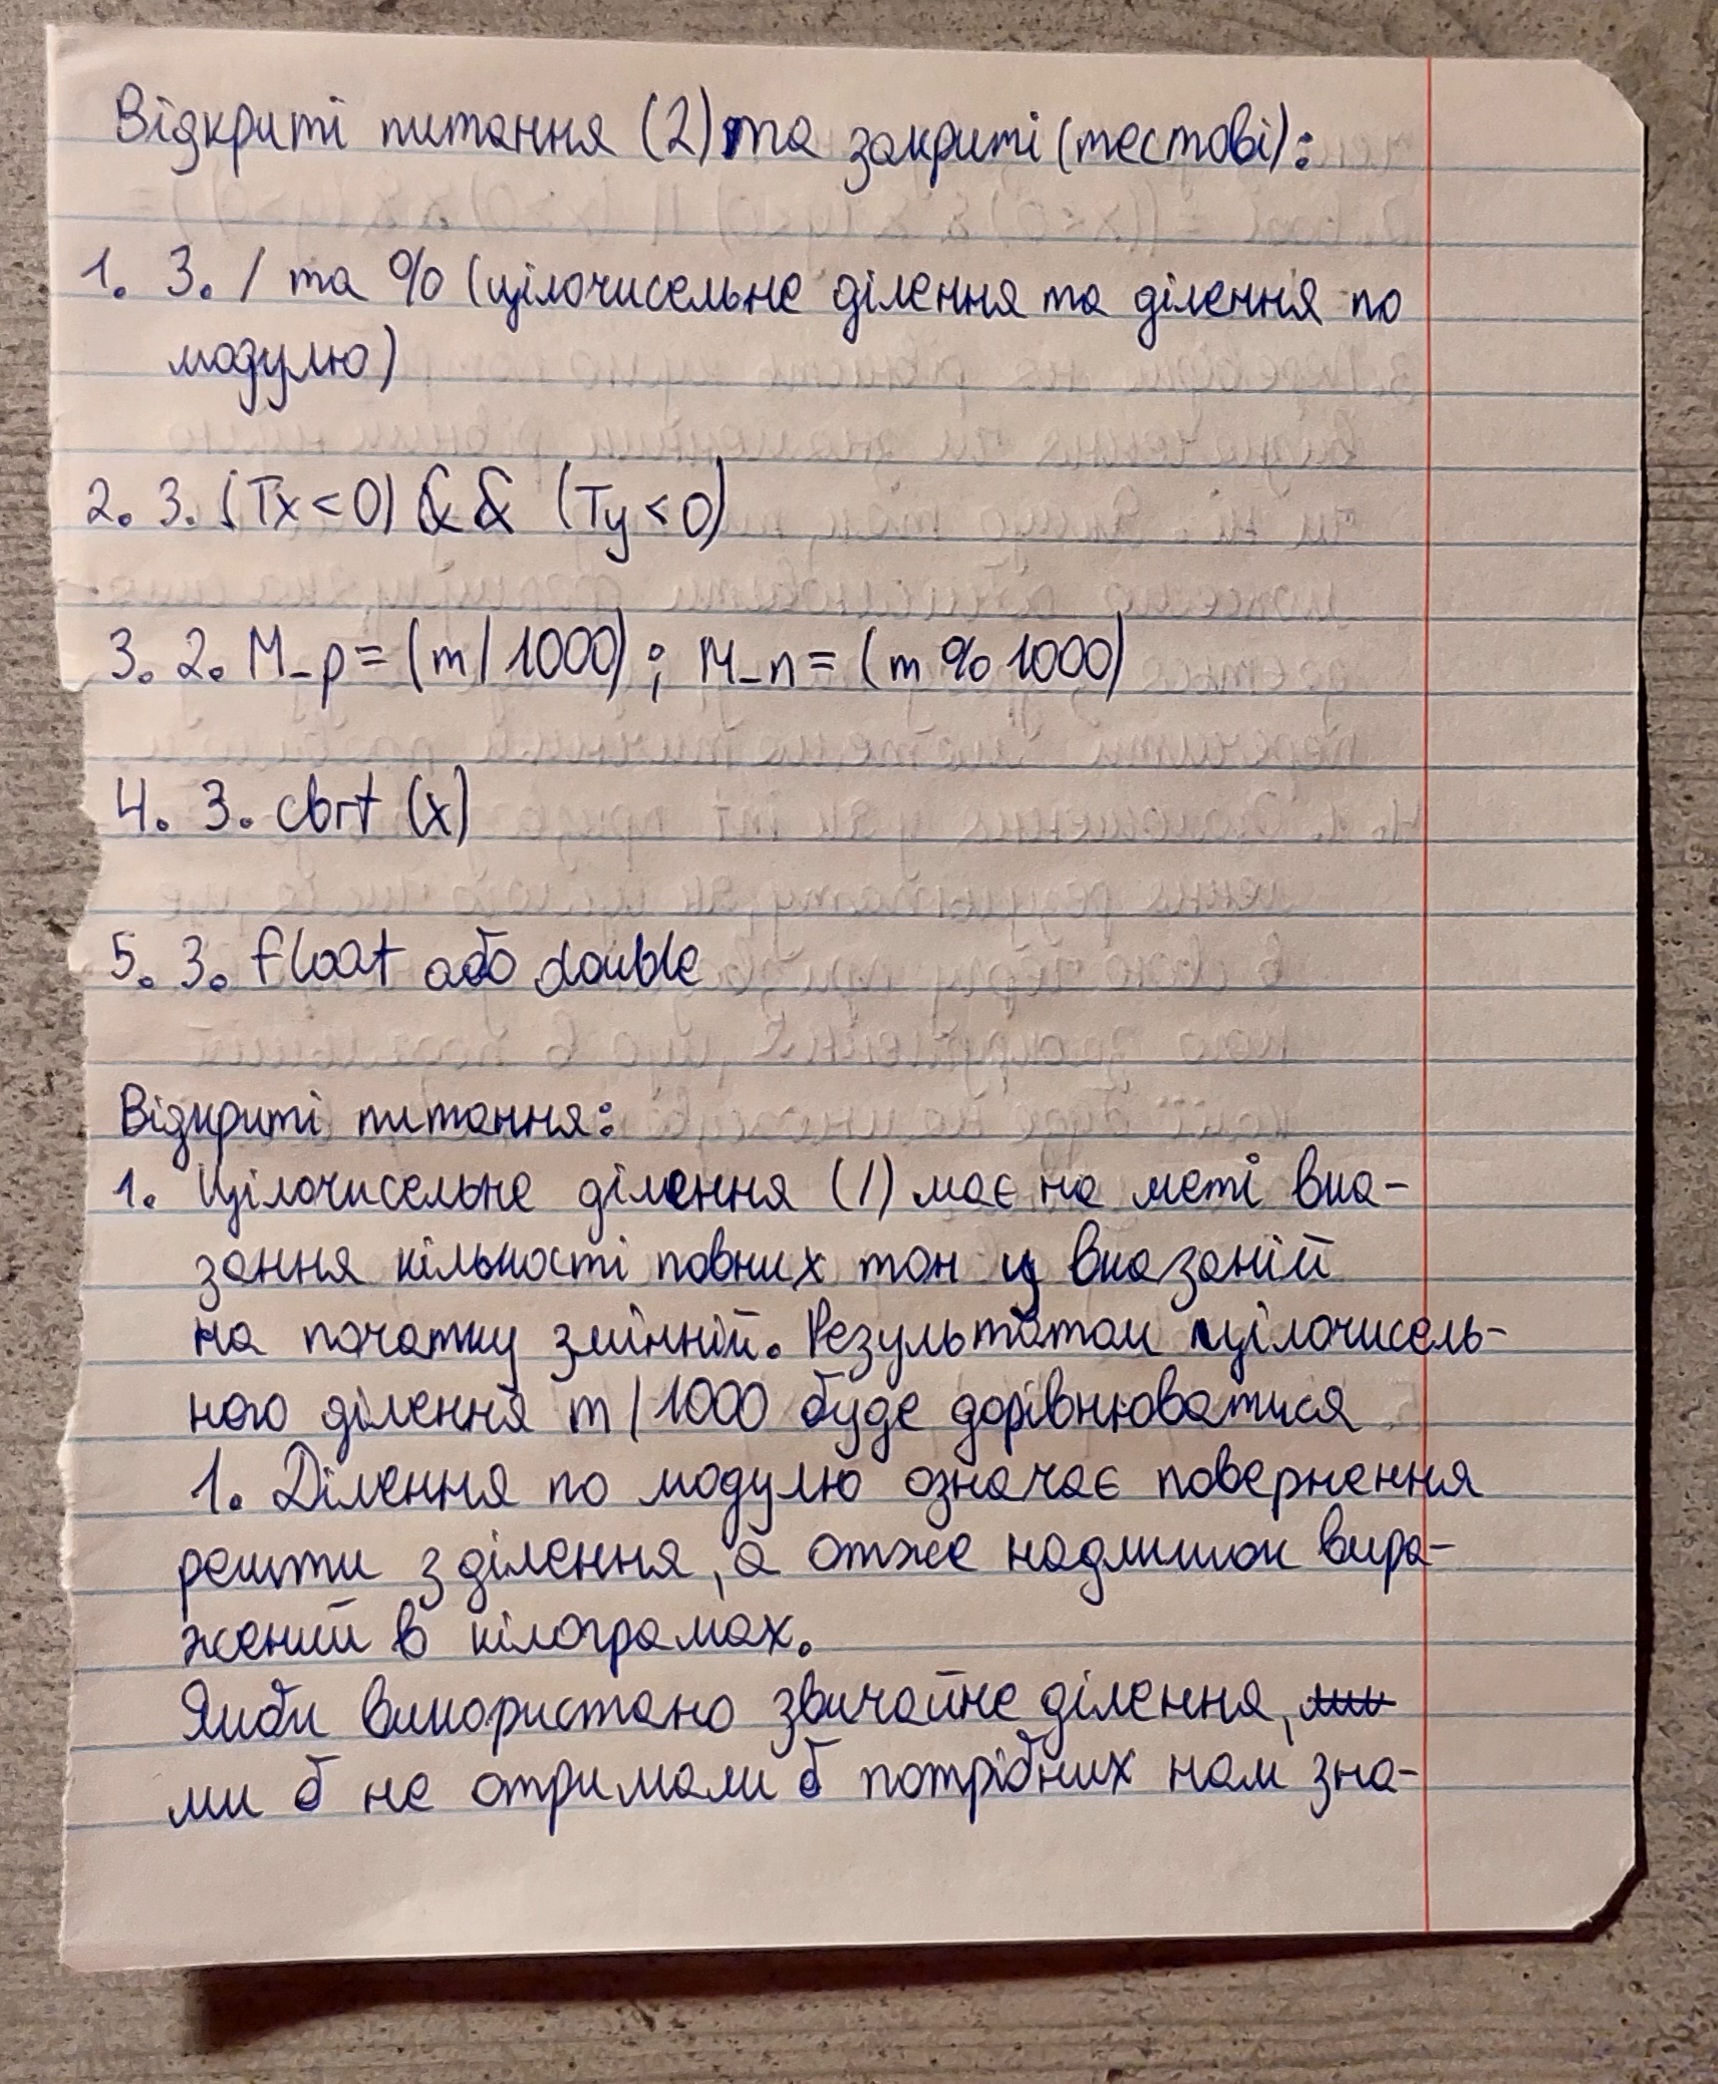 Відкриті питання (2) та закриті (тестові):
1. 3. / та % (цілочисельне ділення та ділення по
модулю)
2. 3. (Tx < 0) && (Ty < 0)
3. 2. M_p = (m / 1000) ; M_n = (m % 1000)
4. 3. cbrt (x)
5. 3. float або double
Відкриті питання:
1. Цілочисельне ділення (/) має на меті вка-
зання кількості повних тон у вказаній
на початку змінній. Результатом цілочисель-
ного ділення m / 1000 буде дорівнюватися
1. Ділення по модулю означає повернення
решти з ділення, а отже надлишок вира-
жений в кілограмах.
Якби використано звичайне ділення,
ми б не отримали б потрібних нам зна-